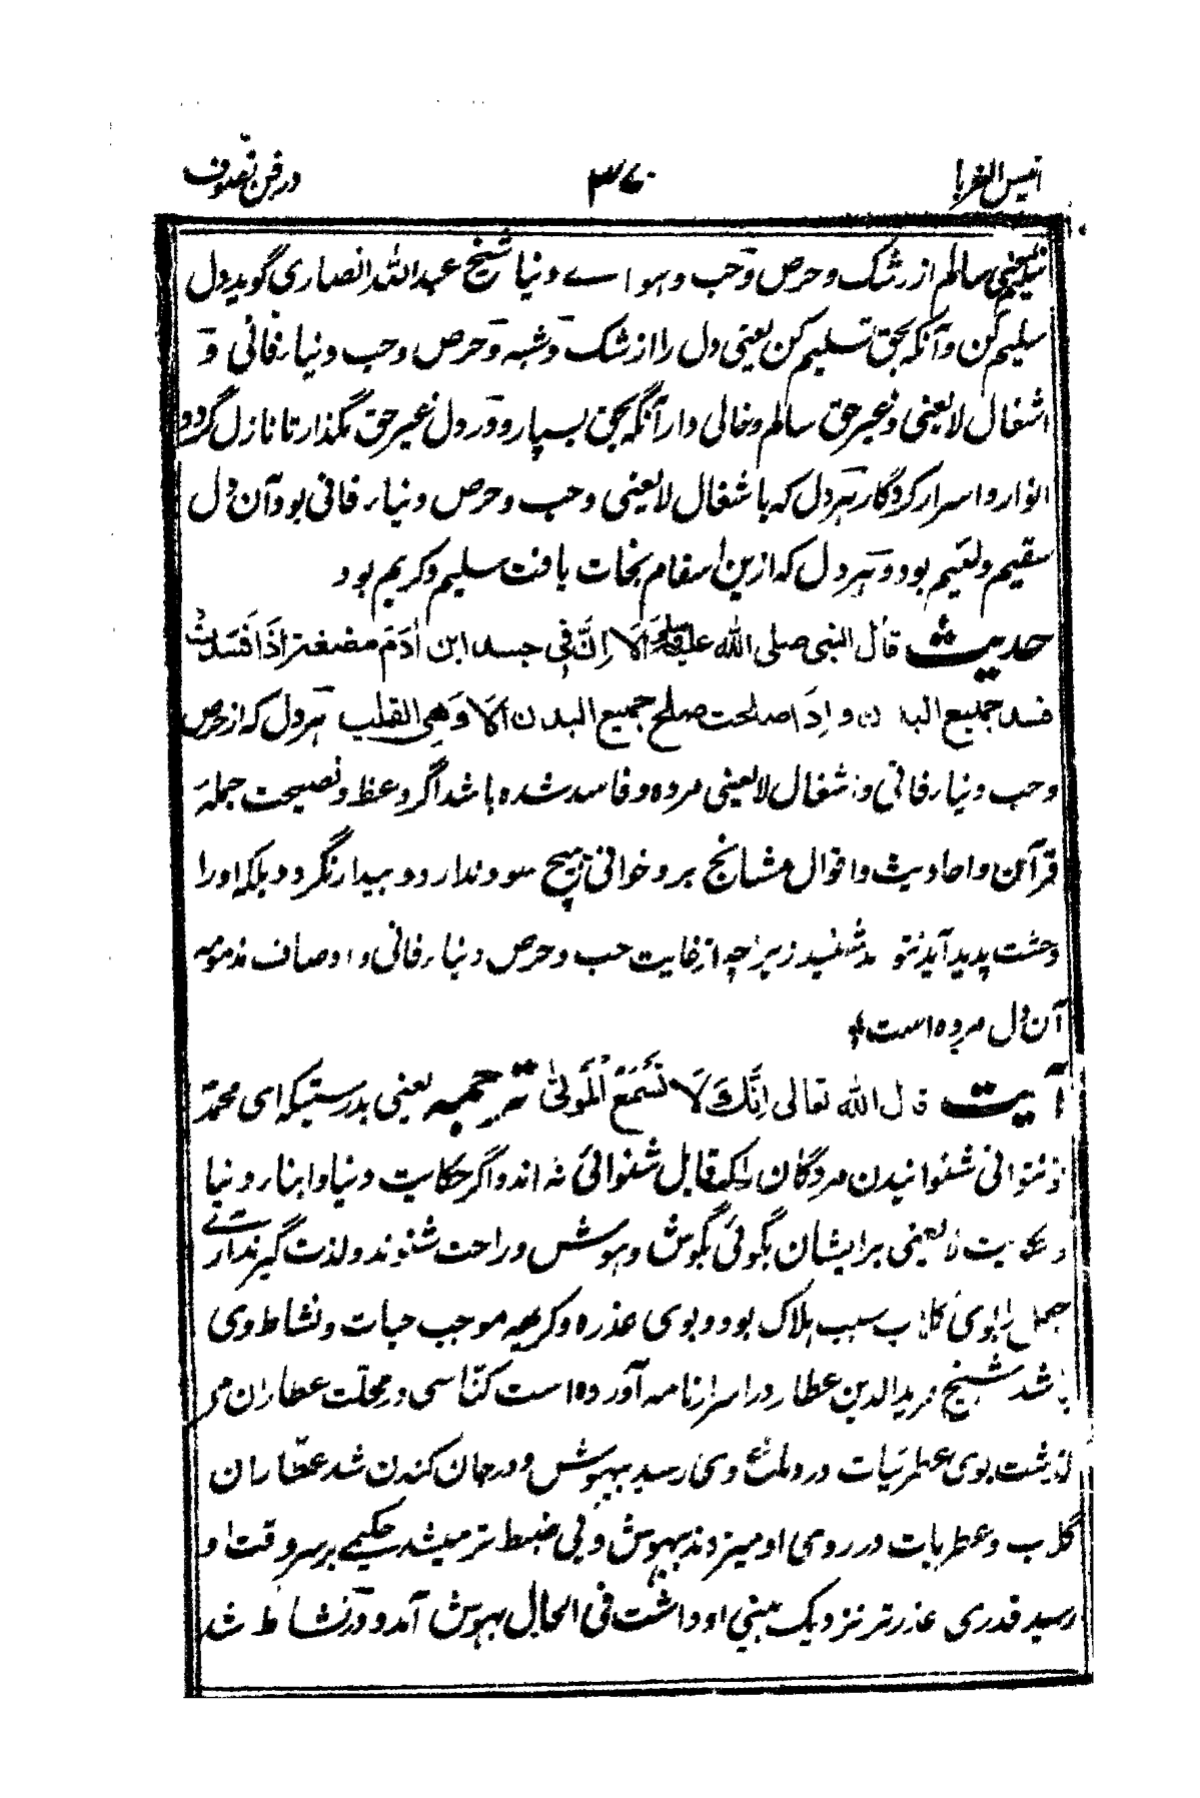 انیس الغربا ۳۷۰ در فن تصوف
یعنی سالم از شک و حرص و حب و هوا اے دنیا شیخ عبد الله انصاری گوید دل
سلیم کن و آنگه بحق تسلیم کن یعنی دل را از شک و شبه و حرص و حب دنیاء فانی و
اشغال لایعنی و غیر حق سالم و خالی دار آنگه بحق بسپار و در دل غیر حق مگذار تا نازل گردد
انوار و اسرار کردگار هر دل که با شغال لایعنی و حب و حرص دنیاء فانی بود آن دل
سقیم و لئیم بود و هر دل که ازین اسقام نجات یافت سلیم و کریم بود
حدیث قال النبی صلی الله علیه وسلم اَلَا اِنَّ فِی جسد ابن اٰدَمَ مضغة اِذَا فَسَدَتْ
فسد جمیع البدن و اِذَا صلحت صلح جمیع البدن اَلَا وَهِی القلب هر دل که از حرص
و حب دنیاء فانی و اشغال لایعنی مرده و فاسد شده باشد اگر وعظ و نصیحت جمله
قرآن و احادیث و اقوال مشائخ برو خوانی هیچ سود ندارد و بیدار نگردد بلکه او را
وحشت پدید آید نتو ند شنید زیرا چه از غایت حب و حرص دنیاء فانی و اوصاف مذمومه
آن دل مرده است
آیت قال الله تعالی اِنَّكَ لَا تُسْمِعُ الْمَوْتٰی ترجمه یعنی بدرستیکه ای محمدؐ
تو نتوانی شنوانیدن مردگان را که قابل شنوائی نه اند و اگر حکایت دنیا و ابناء دنیا
و حکایت لایعنی بر ایشان بگوئی بگوش و هوش و راحت شنوند و لذت گیرند آرے
جعل را بوی گلاب سبب هلاک بود و بوی عذره و کریهه موجب حیات و نشاط وی
باشد شیخ فرید الدین عطار در اسرار نامه آورده است کنّاسی در محلّت عطاران می
گذشت بوی عطریات در دماغ وی رسید بیهوش و در جان کندن شد عطّاران
گلاب و عطریات در روی او میزدند بیهوش و بی ضبط تر میشد حکیمے بر سر وقت او
رسید قدری عذره تر نزدیک بینی او داشت فی الحال بهوش آمد و در نشاط شد